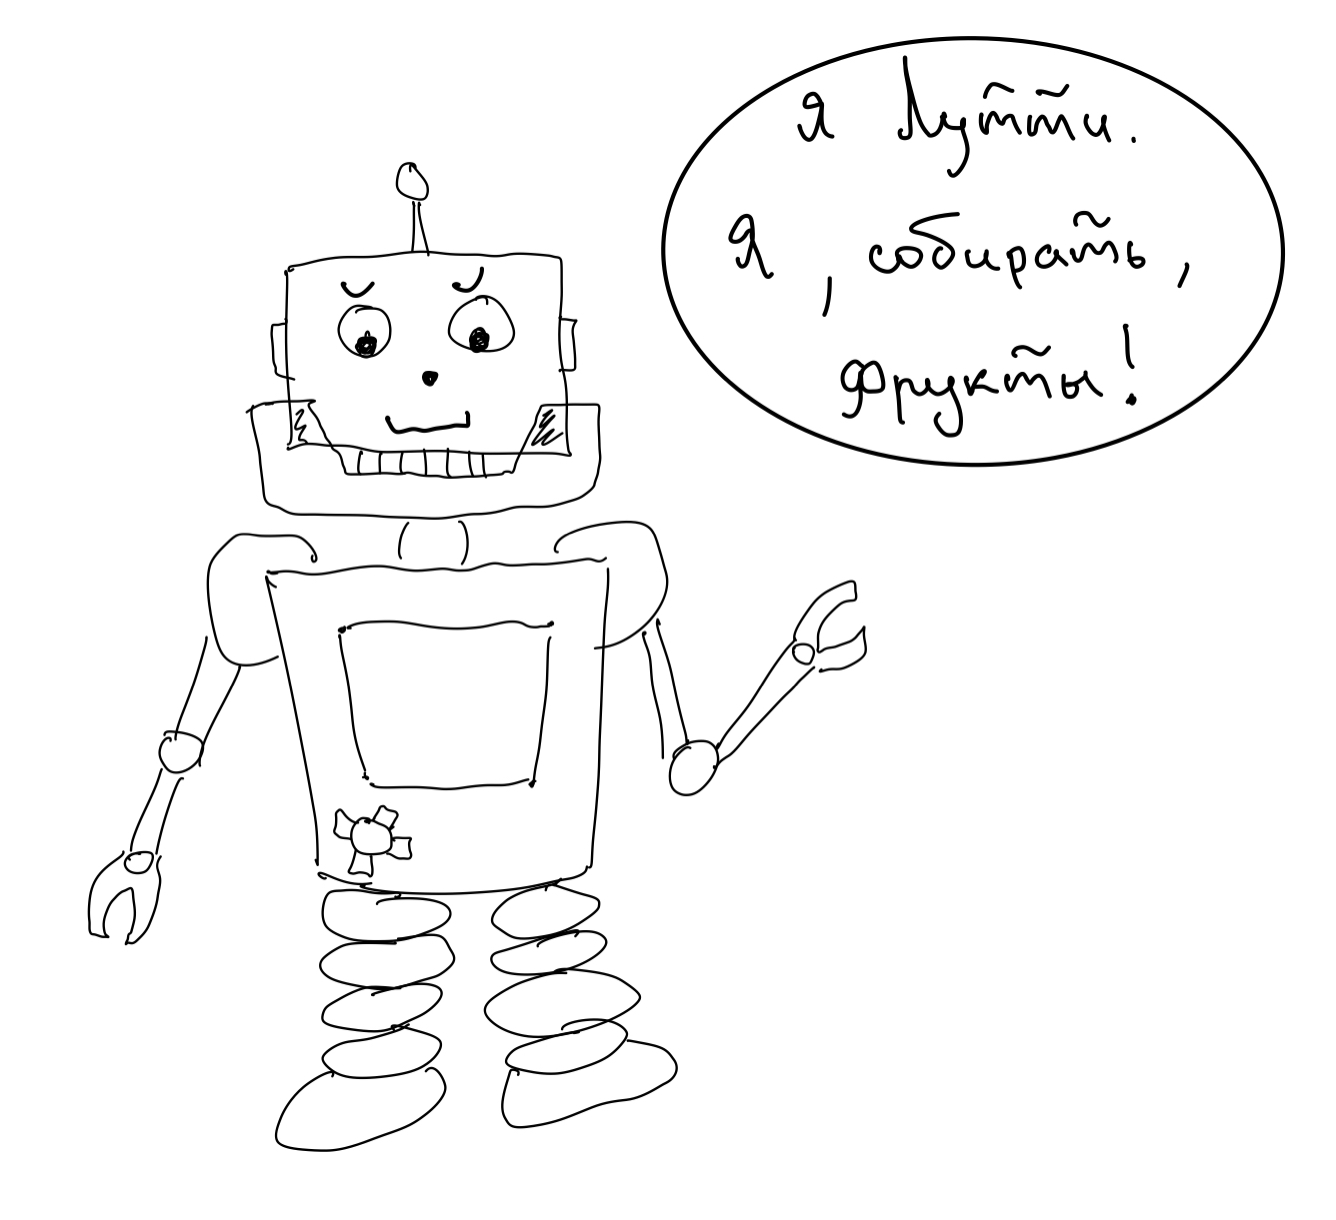 Я Лутти.
Я, собирать,
фрукты!